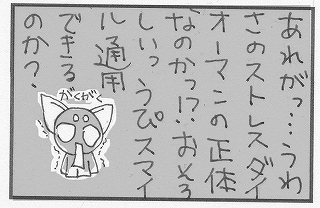 あれがっ…うわ
さのストレスダイ
オーマンの正体
なのかっ!?おそろ
しいっうぴスマイ
ル通用
できる
のか?
がくがく